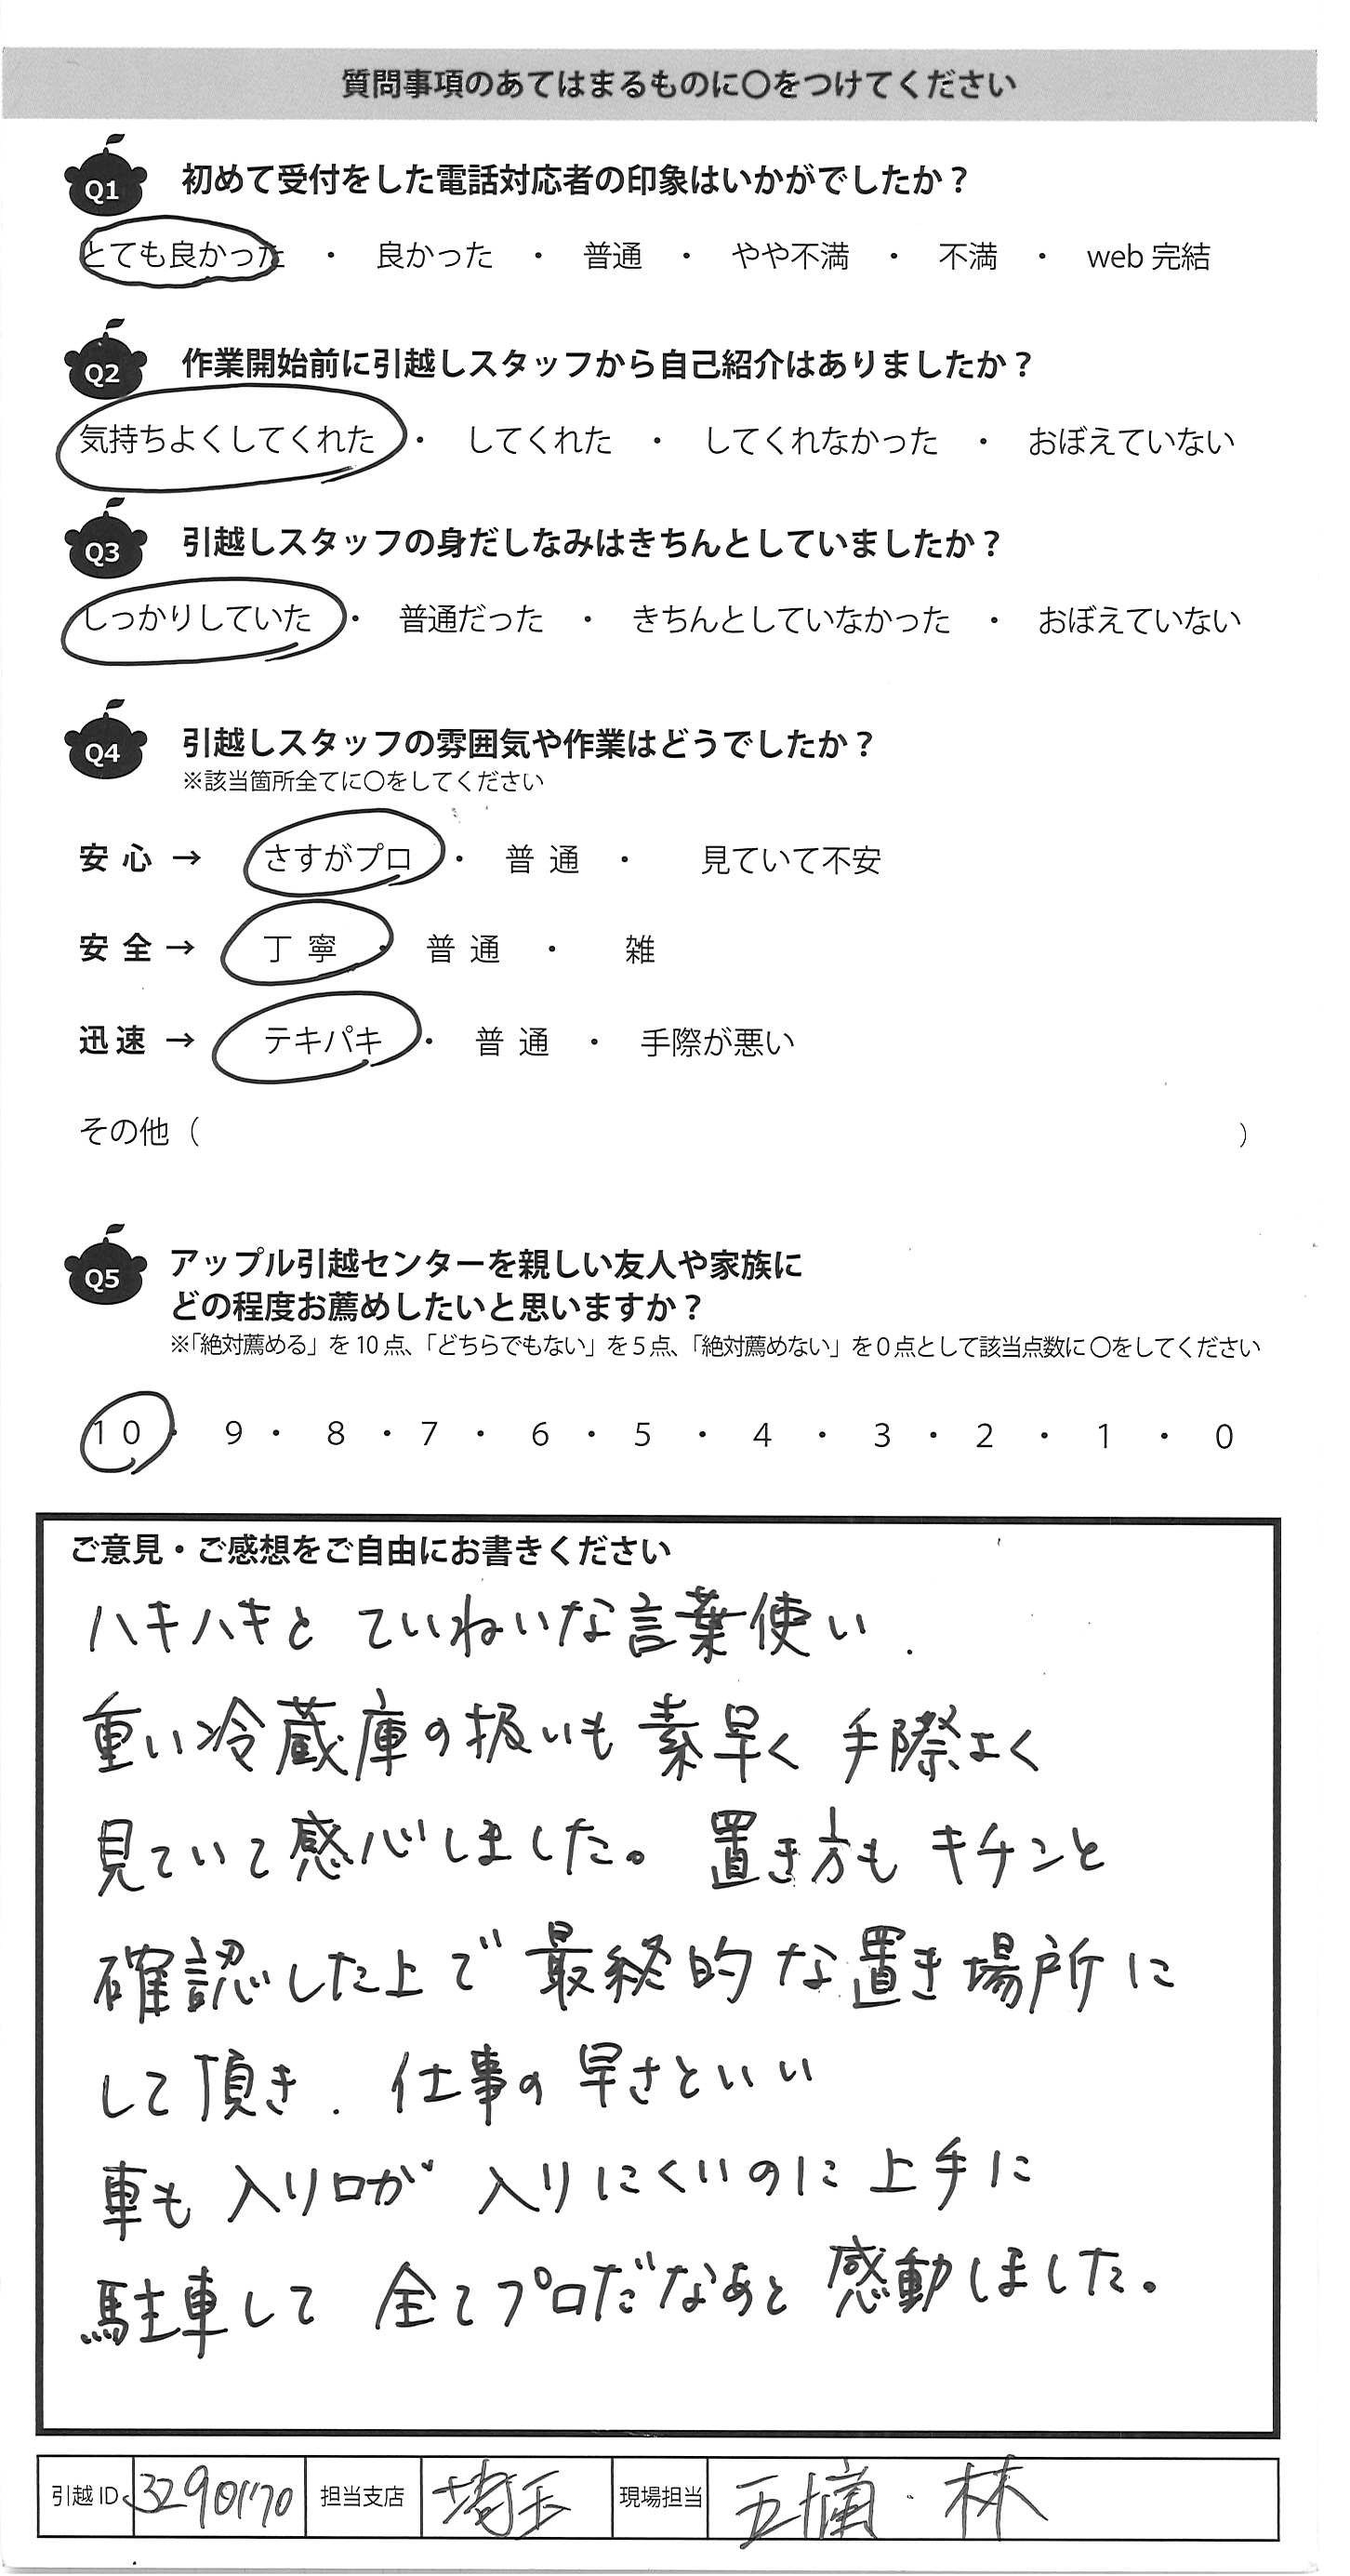 質問事項のあてはまるものに〇をつけてください
Q1 初めて受付をした電話対応者の印象はいかがでしたか？
とても良かった ・ 良かった ・ 普通 ・ やや不満 ・ 不満 ・ web 完結
Q2 作業開始前に引越しスタッフから自己紹介はありましたか？
気持ちよくしてくれた ・ してくれた ・ してくれなかった ・ おぼえていない
Q3 引越しスタッフの身だしなみはきちんとしていましたか？
しっかりしていた ・ 普通だった ・ きちんとしていなかった ・ おぼえていない
Q4 引越しスタッフの雰囲気や作業はどうでしたか？
※該当箇所全てに〇をしてください
安心 → さすがプロ ・ 普通 ・ 見ていて不安
安全 → 丁寧 ・ 普通 ・ 雑
迅速 → テキパキ ・ 普通 ・ 手際が悪い
その他（ ）
Q5 アップル引越センターを親しい友人や家族に
どの程度お薦めしたいと思いますか？
※「絶対薦める」を 10 点、「どちらでもない」を 5 点、「絶対薦めない」を 0 点として該当点数に 〇をしてください
10 ・ 9 ・ 8 ・ 7 ・ 6 ・ 5 ・ 4 ・ 3 ・ 2 ・ 1 ・ 0
ご意見・ご感想をご自由にお書きください
ハキハキと ていねいな言葉使い.
重い冷蔵庫の扱いも 素早く 手際よく
見ていて感心しました。 置き方も キチンと
確認した上で 最終的な置き場所に
して頂き. 仕事の早さといい
車も 入り口が 入りにくいのに 上手に
駐車して 全てプロだなあと 感動しました。
引越 ID 担当支店 埼玉 現場担当 林